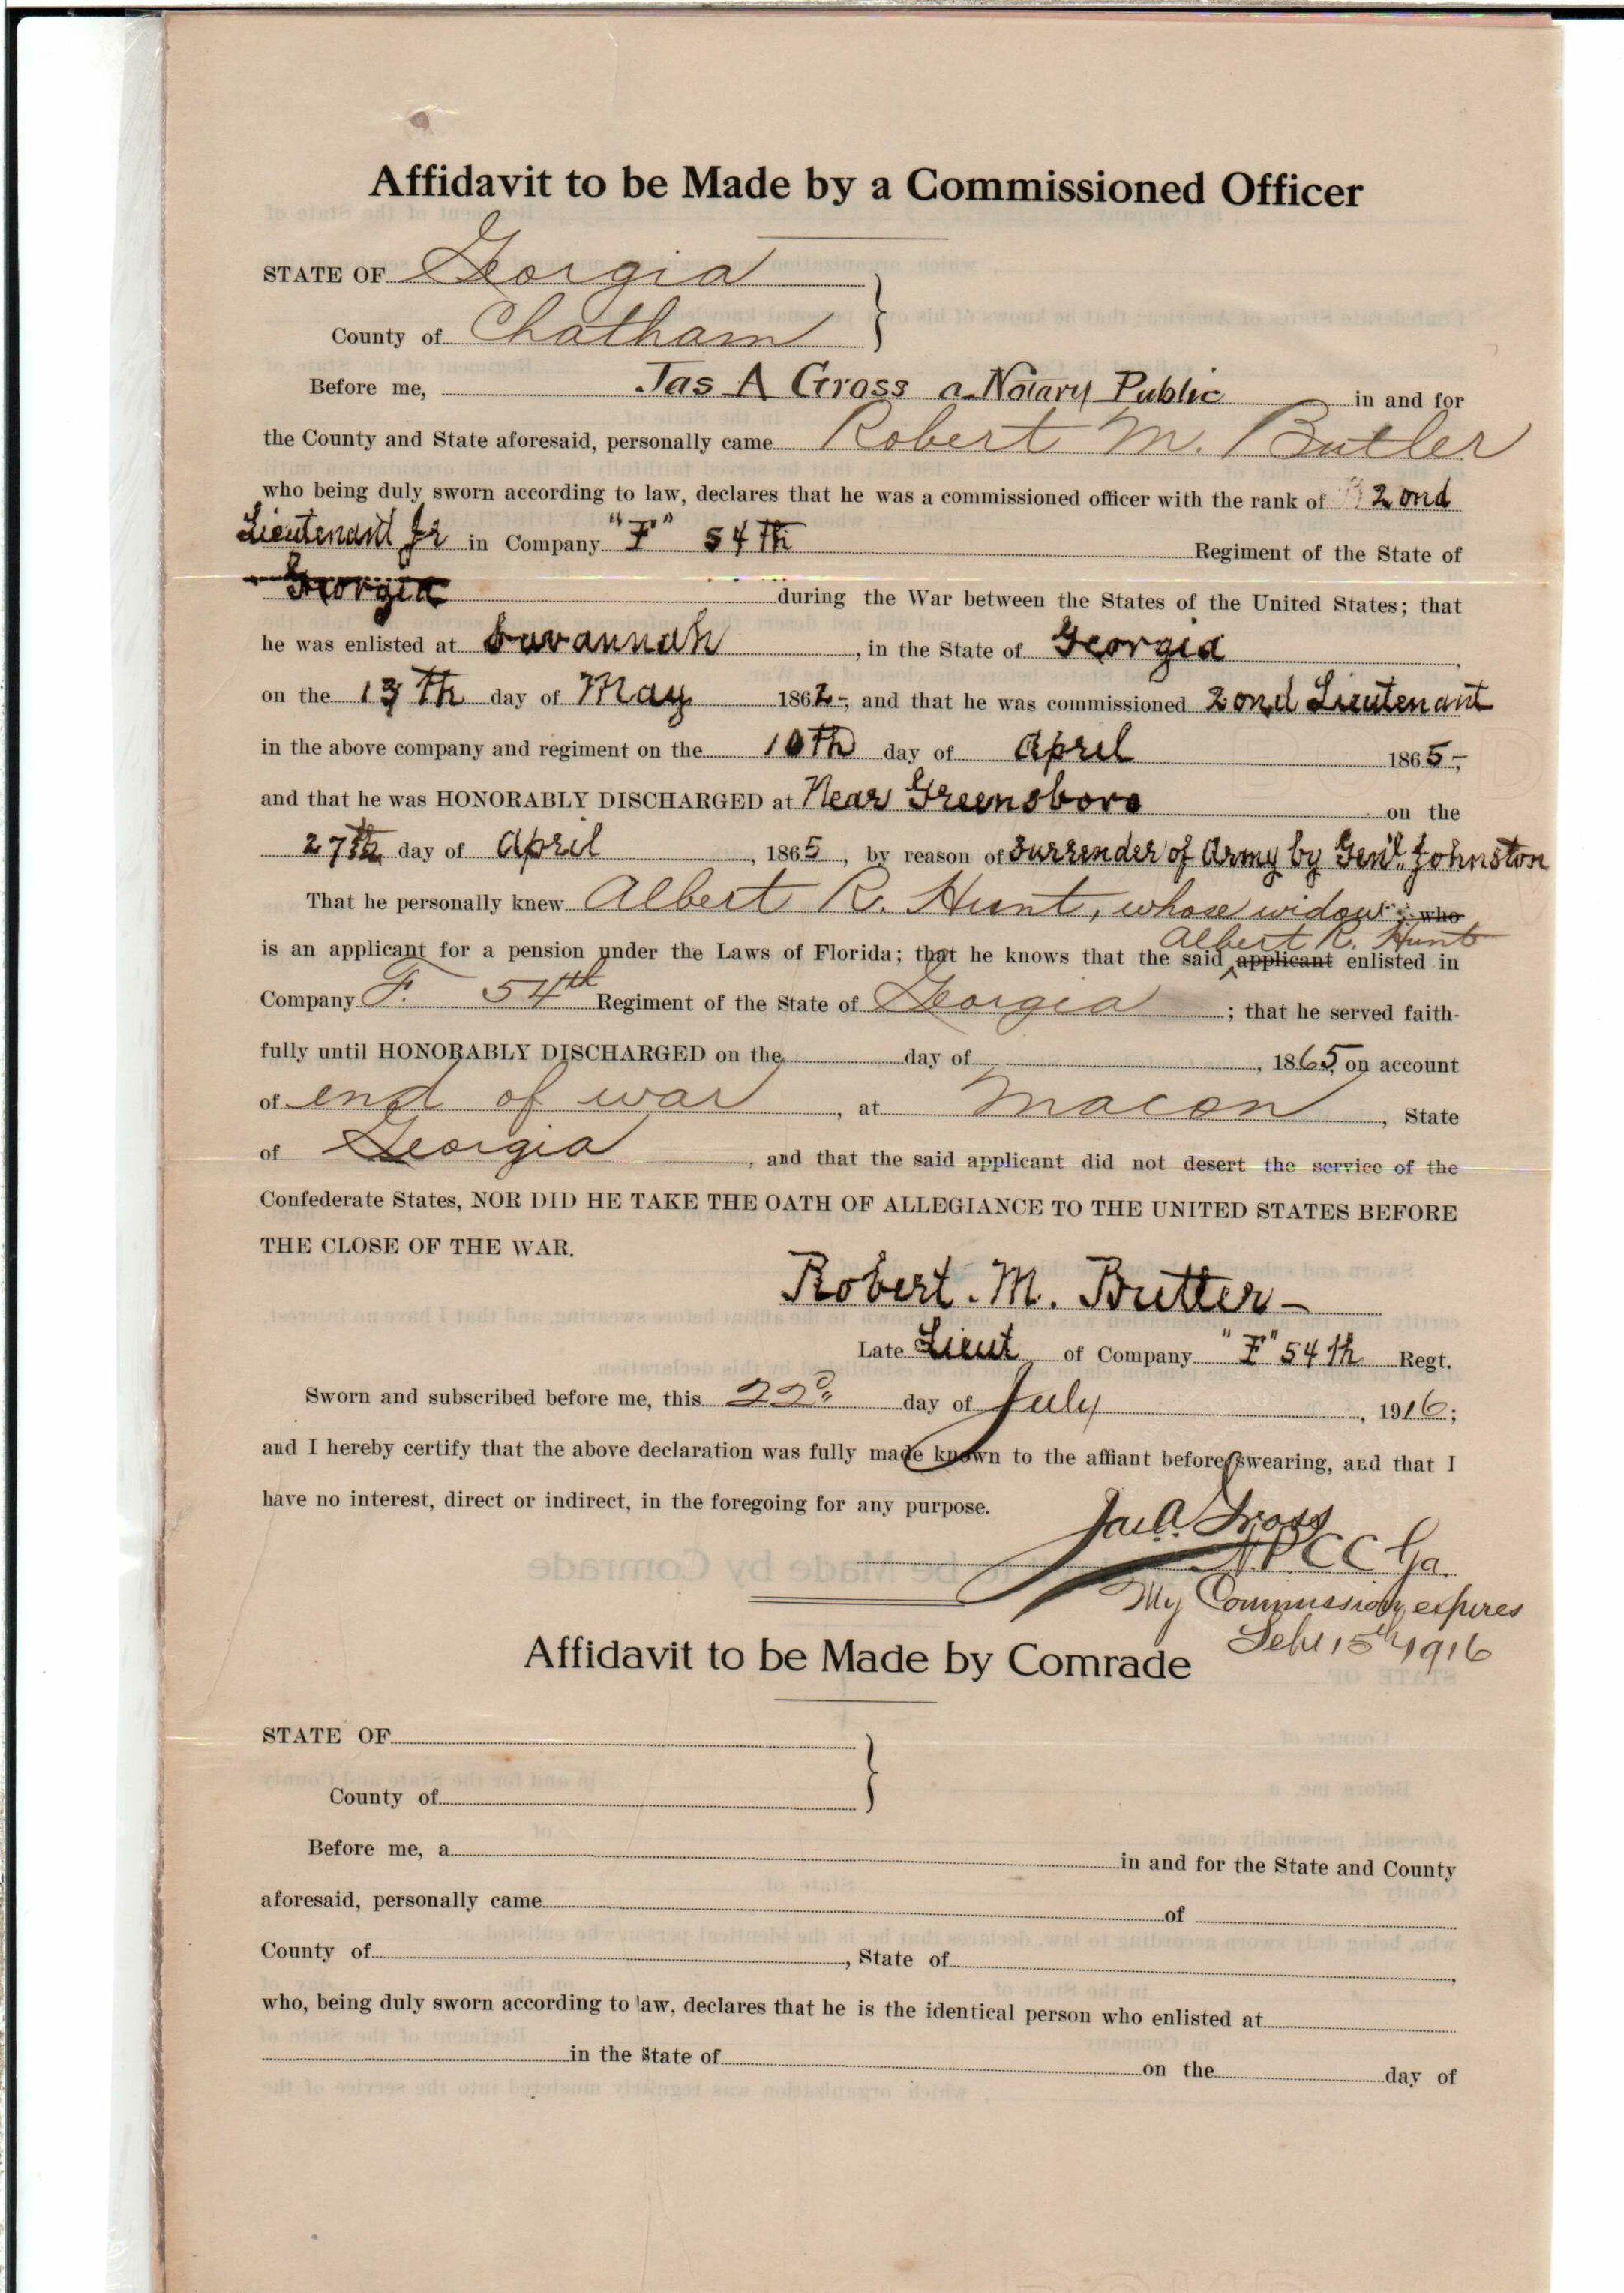 Affidavit to be Made by a Commissioned Officer
STATE OF Georgia
County of Chatham
Before me, Jas A Gross a Notary Public in and for
the County and State aforesaid, personally came Robert M. Butler
who being duly sworn according to law, declares that he was a commissioned officer with the rank of 2ond
Lieutenant Jr in Company "F" 54th Regiment of the State of
Georgia during the War between the States of the United States; that
he was enlisted at Savannah, in the State of Georgia,
on the 13th day of May 1862-, and that he was commissioned 2ond Lieutenant
in the above company and regiment on the 10th day of April 1865-;
and that he was HONORABLY DISCHARGED at Near Greensboro on the
27th day of April, 1865, by reason of Surrender of Army by Genl. Johnston
That he personally knew Albert R. Hunt, whose widow who
is an applicant for a pension under the Laws of Florida; that he knows that the said Albert R. Hunt applicant enlisted in
Company F. 54th Regiment of the State of Georgia; that he served faith-
fully until HONORABLY DISCHARGED on the day of, 1865, on account
of end of war, at Macon, State
of Georgia, and that the said applicant did not desert the service of the
Confederate States, NOR DID HE TAKE THE OATH OF ALLEGIANCE TO THE UNITED STATES BEFORE
THE CLOSE OF THE WAR.
Robert. M. Butler-
Late Lieut of Company "F" 54th Regt.
Sworn and subscribed before me, this 22d day of July, 1916;
and I hereby certify that the above declaration was fully made known to the affiant before swearing, and that I
have no interest, direct or indirect, in the foregoing for any purpose.
Jas. A. Gross
N.P. C C Ga.
My Commission expires
15th 1916
Affidavit to be Made by Comrade
STATE OF
County of
Before me, a in and for the State and County
aforesaid, personally came of
County of, State of,
who, being duly sworn according to law, declares that he is the identical person who enlisted at
in the State of on the day of